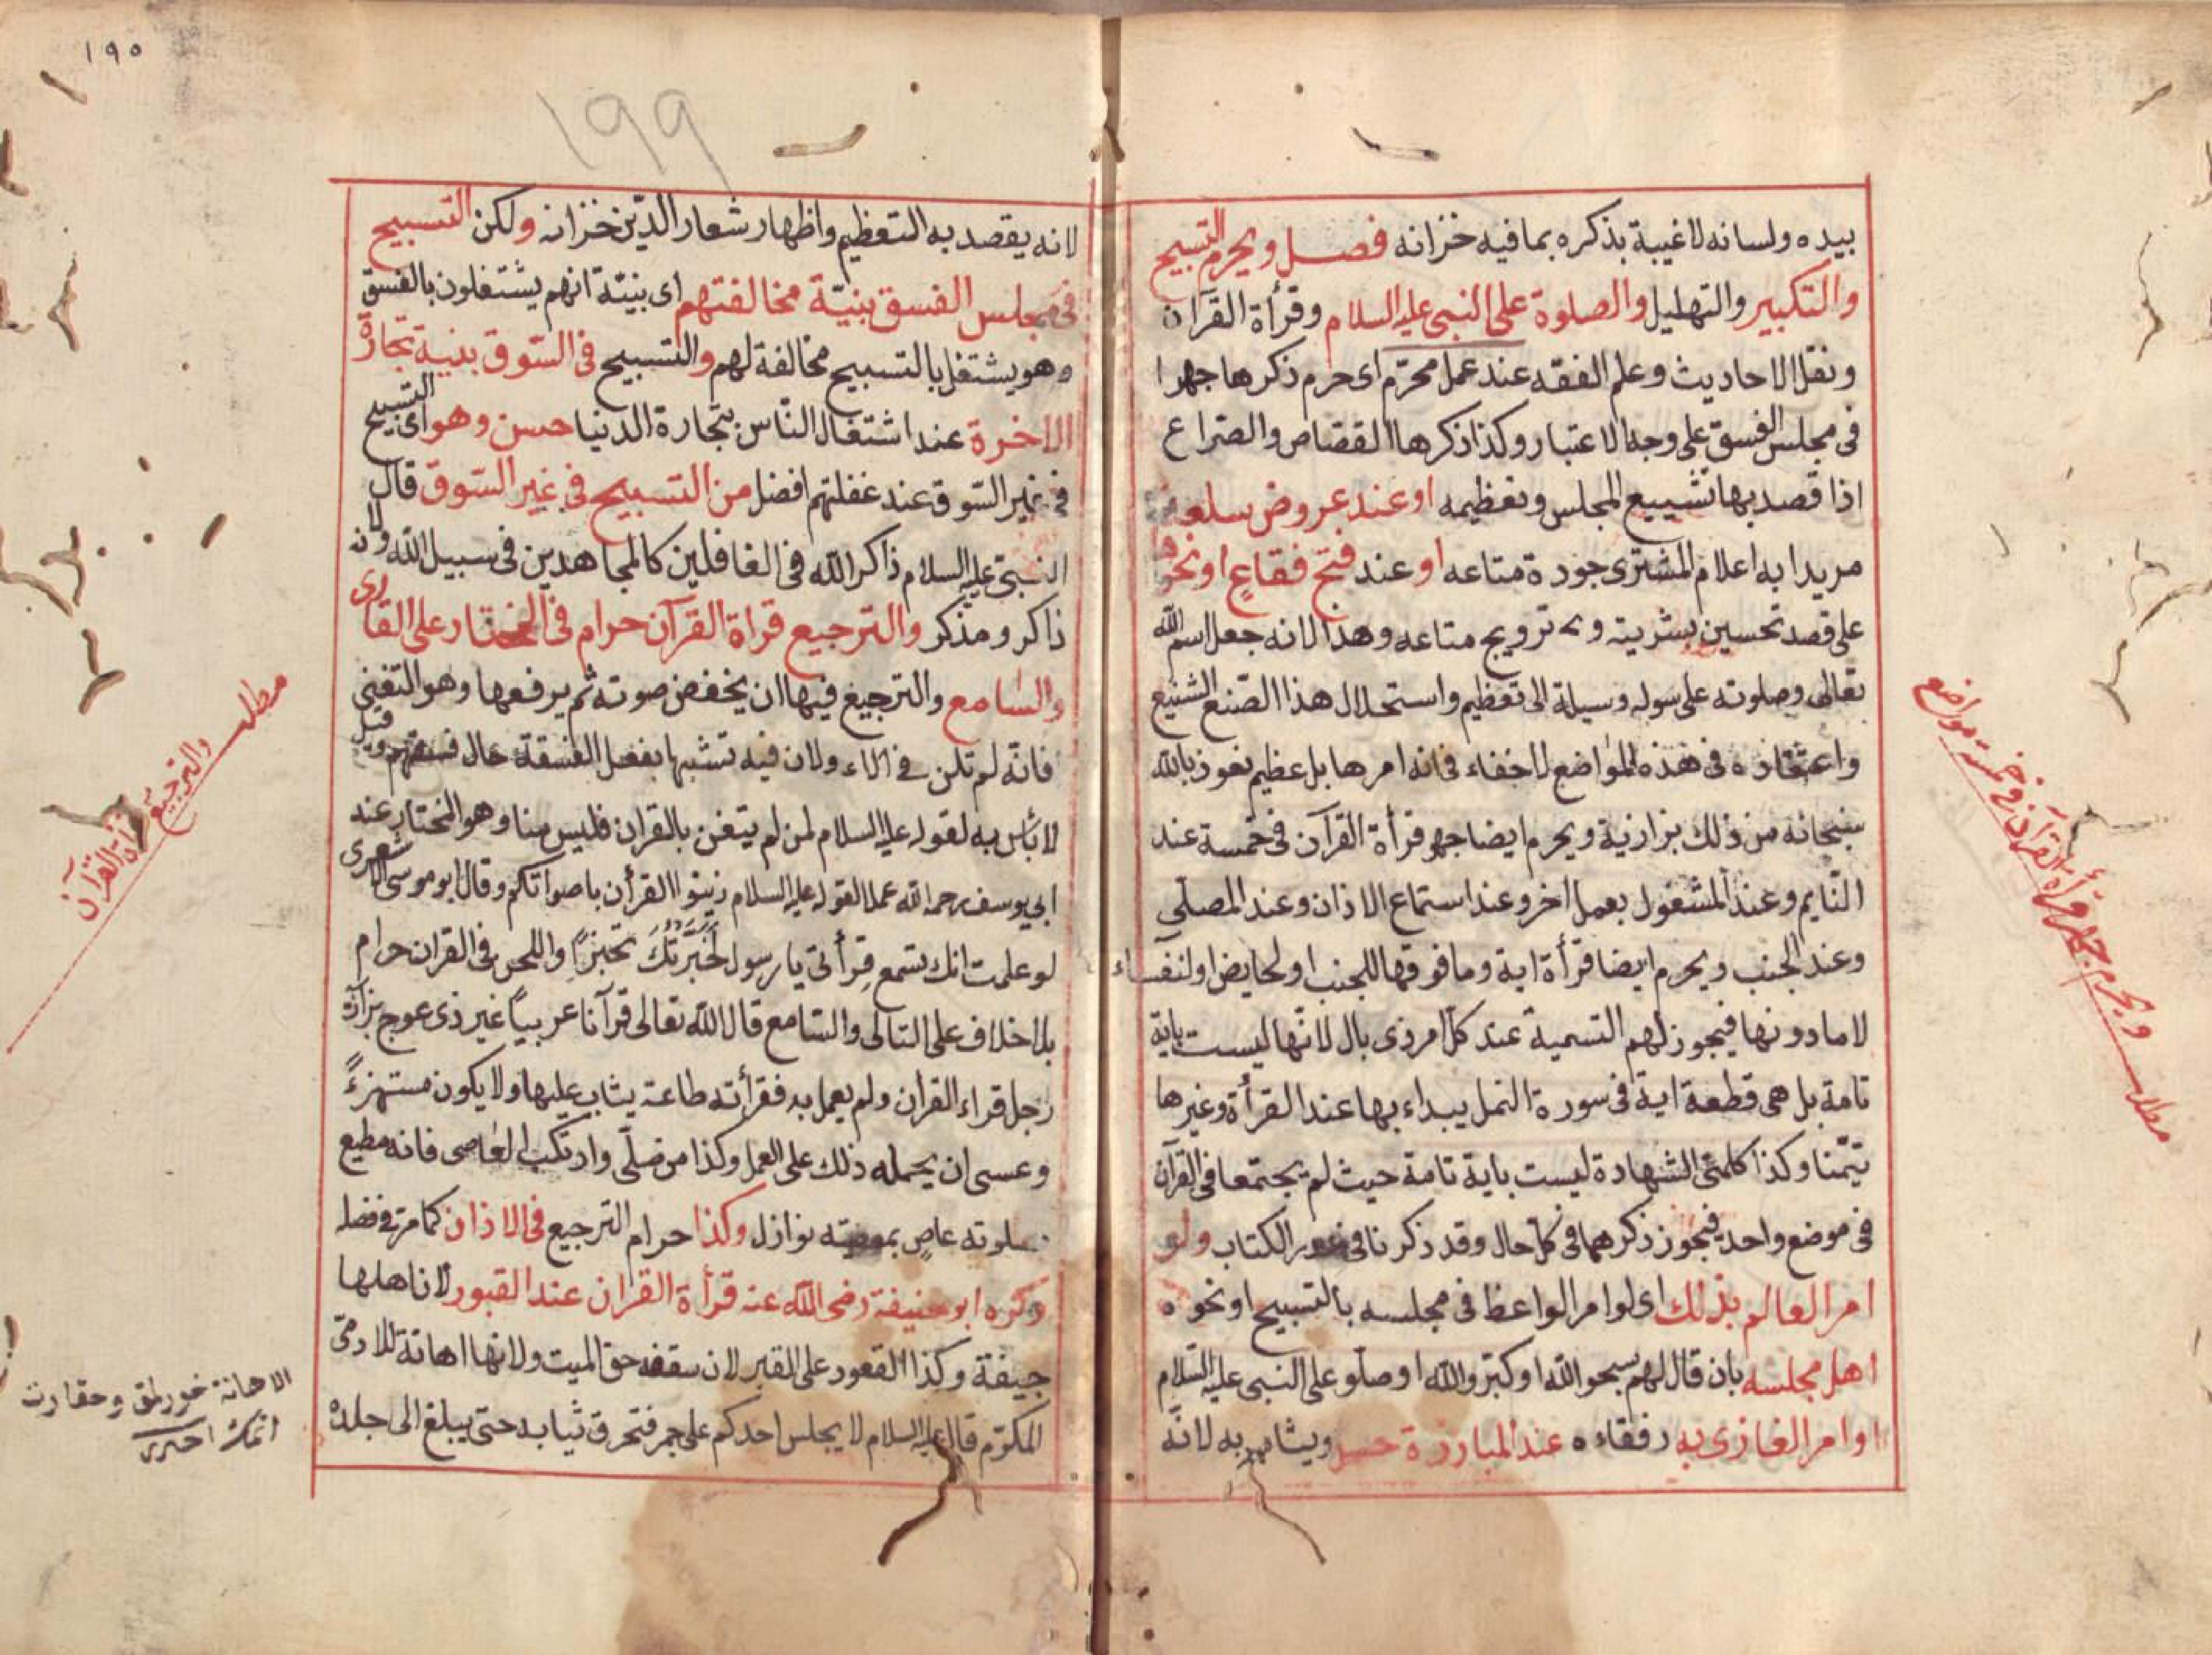 بيده ولسانه لا غيبة بذكره بما فيه خزانه فصل ويحرم التسبيح
والتكبير والتهليل والصلوة على النبى عليه السلام وقرأة القرآن
ونقل الاحاديث وعلم الفقه عند عمل محرّم اى حرم ذكرها جهرا
فى مجلس الفسق على وجه الاعتبار وكذا ذكرها القصّاص والصراع
اذا قصد بها تشييع المجلس وتعظيمه او عند عروض سلعة
مريدا به اعلام المشترى جودة متاعه او عند فتح فقاعٍ او نحوها
على قصد تحسين بشريته و ترويج متاعه وهذا لانه جعل اسم الله
تعالى وصلوته على سوله وسيلة الى تعظيم واستحلال هذا الصّنع الشنيع
فى هذه المواضع لا خفاء فانه امرها بل عظيم نعوذ بالله
سبحانه من ذلك بزازية ويحرم ايضا جهر قرأة القرآن فى خمسة عند
النّايم وعند المشغول بعمل اخر وعند استماع الاذان وعند المصلّى
وعند الجنب ويحرم ايضا قرأة اية وما فوقها للجنب او لحايض او لنفساء
لا ما دونها فيجوز لهم التسمية عند كلّ امر ذى بال لانّها ليست باية
تامة بل هى قطعة اية فى سورة النمل يبداء بها عند القرأة وغيرها
تيمّنا وكذا كلمتى الشهادة ليست باية تامة حيث لم يجتمعا فى القرآن
فى موضع واحد فيجوز ذكرهما فى كلّ حال وقد ذكرنا فى الكتاب ولو
امر العالم بذلك اى لو امر الواعظ فى مجلسه بالتسبيح او نحوه
اهل مجلسه بان قال لهم سبحو الله او كبّر والله او صلّو على النبى عليه السّلام
او امر الغازى به رفقاءه عند المبارزة حسن ويثاب به لانّه
مطلب ويحرم جهر قرأة القرآن فى خمسة مواضع
١٩٥
١٩٩
لانه يقصد به التعظيم واظهار شعار الدّين خزانه ولكن التسبيح
فى مجلس الفسق بنيّة مخالفتهم اى بنيّة انهم يشتغلون بالفسق
وهو يشتغل بالتسبيح مخالفة لهم والتسبيح فى السّوق بنية تجارة
الاخرة عند اشتغال النّاس بتجارة الدنيا حسن وهو اى التسبيح
فى غير السّوق عند غفلتهم افضل من التسبيح فى غير السّوق قال
النبىّ عليه السلام ذاكر الله فى الغافلين كالمجاهدين فى سبيل الله ولان
ذاكر ومذكر والترجيع قراة القرآن حرام فى المختار على القارى
والسّامع والترجيع فيها ان يخفض صوته ثم يرفعها وهو التغنى
فانّه لم تلن فى الاء ولان فيه تشبها بفعل الفسقة حال فسقهم وقيل
لا بأس به لقوله عليه السلام لمن لم يتغن بالقران فليس منا وهو المختار عند
ابى يوسف رحمه الله عملا لقوله عليه السلام زيّنوا القرأن باصواتكم وقال ابو موسى الاشعرى
لو علمت انك تسمع قرأتى يا رسول لَحَبَّرتُكَ تحبيرًا واللحن فى القران حرام
بلا خلاف على التالى والسّامع قال الله تعالى قرآنا عربيّاً غير ذى عوج بزازة
رجل قراء القران ولم يعمل به فقرأته طاعة يثاب عليها ولا يكون مستهزءً
وعسى ان يحمله ذلك على العمل وكذا من صلّى وارتكب المعاصى فانه مطيع
بصلوته عاصٍ بمعصيته نوازل وكذا حرام الترجيع فى الاذان كما مرّ فى فضله
وكره ابو حنيفة رضى الله عنه قرأة القران عند القبور لان اهلها
جيفة وكذا القعود على القبر لان سقفه حق الميت ولانها اهانة للادمىّ
المكرّم قال عليه السلام لا يجلس احدكم على جمر فتحرق ثيابه حتى يبلغ الى جلده
مطلب والترجيع قرأة القرآن
الاهانة خورلمق وحقارت
اتمك اخترى